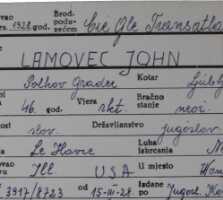 vao Brod.
rs. 1928. god. podu- Cie Gle Transatla
zećem
LAMOVEC JOHN
Polhov Gradec Kotar Ljublj
46. god. Vjera rkt. Bračno neož.
stanje
ost slov. Državljanstvo jugoslav
Le Havre Luka
iskrcanja N
vao Ill USA U mjesto
3917/8723 od 15-III-28. Izdane Jugosl. Ko
po